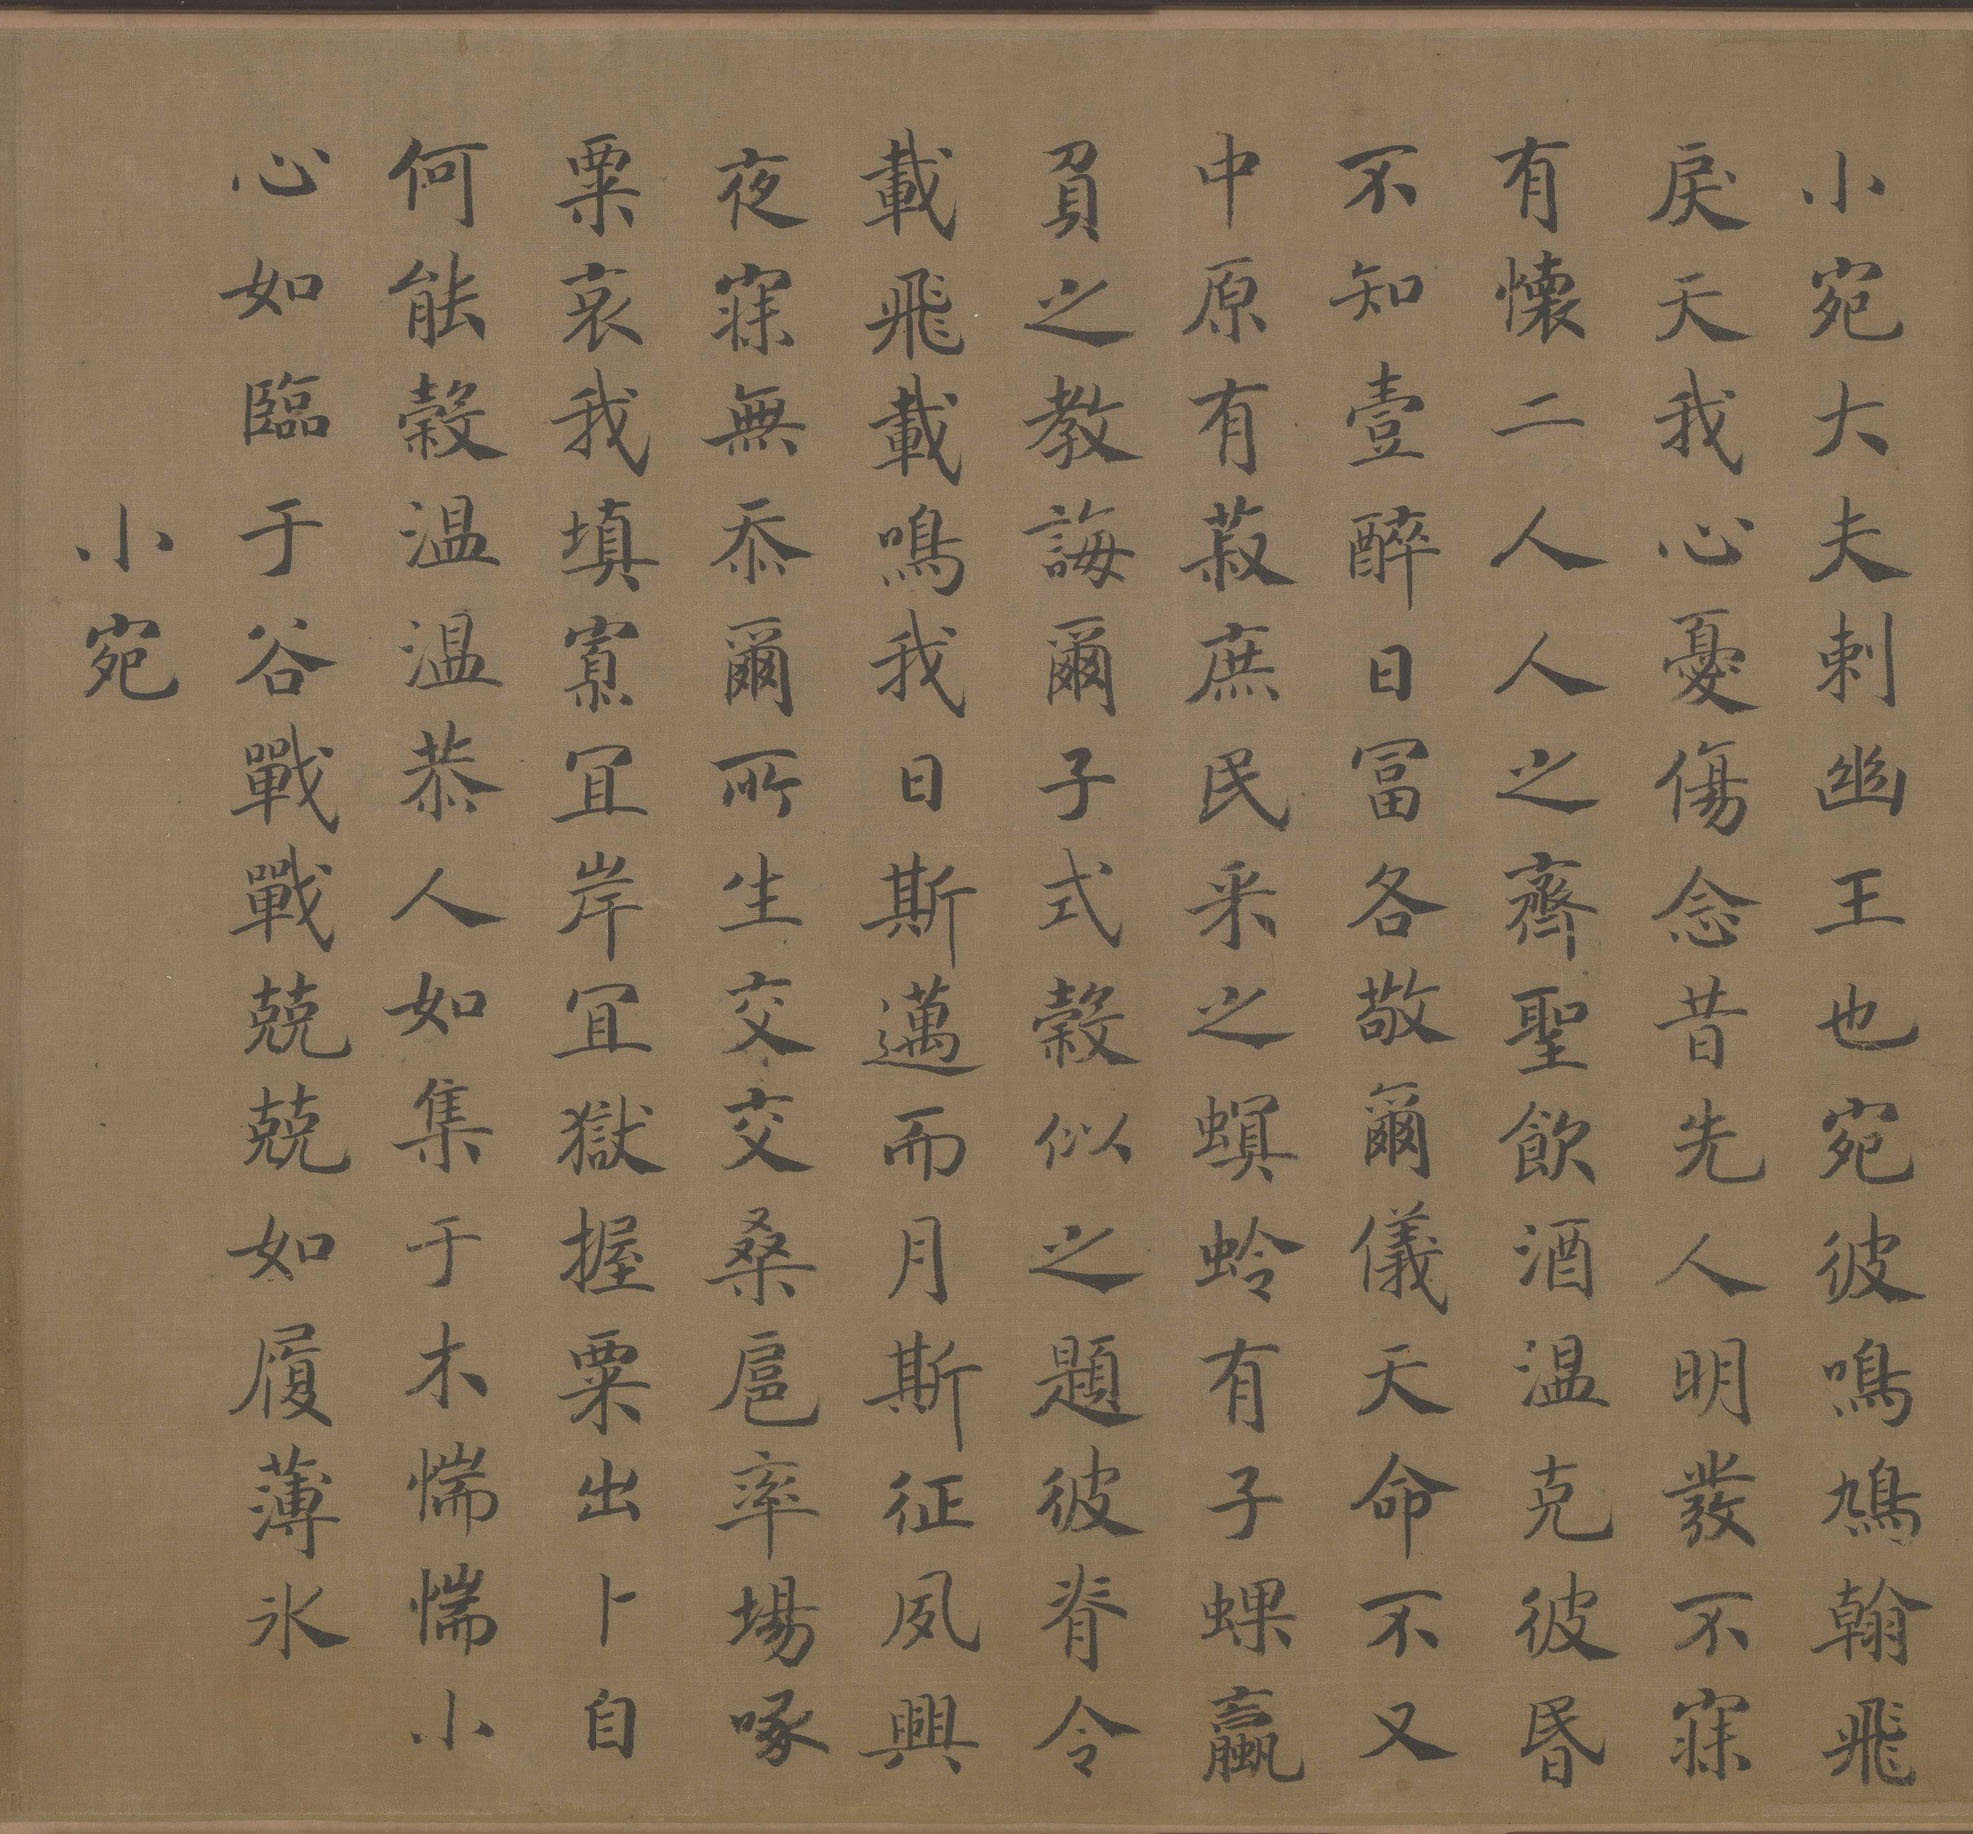 小宛大夫刺幽王也宛彼鳴鳩翰飛
戾天我心憂傷念昔先人明發不寐
有懷二人人之齊聖飲酒温克彼昬
不知壹醉日冨各敬爾儀天命不又
中原有菽庶民采之螟蛉有子蜾蠃
負之教誨爾子式榖似之題彼脊令
載飛載鳴我日斯邁而月斯征夙興
夜寐無忝爾所生交交桑扈率場啄
粟哀我填寡宜岸宜獄握粟出卜自
何能榖温温恭人如集于木惴惴小
心如臨于谷戰戰兢兢如履薄氷
小宛